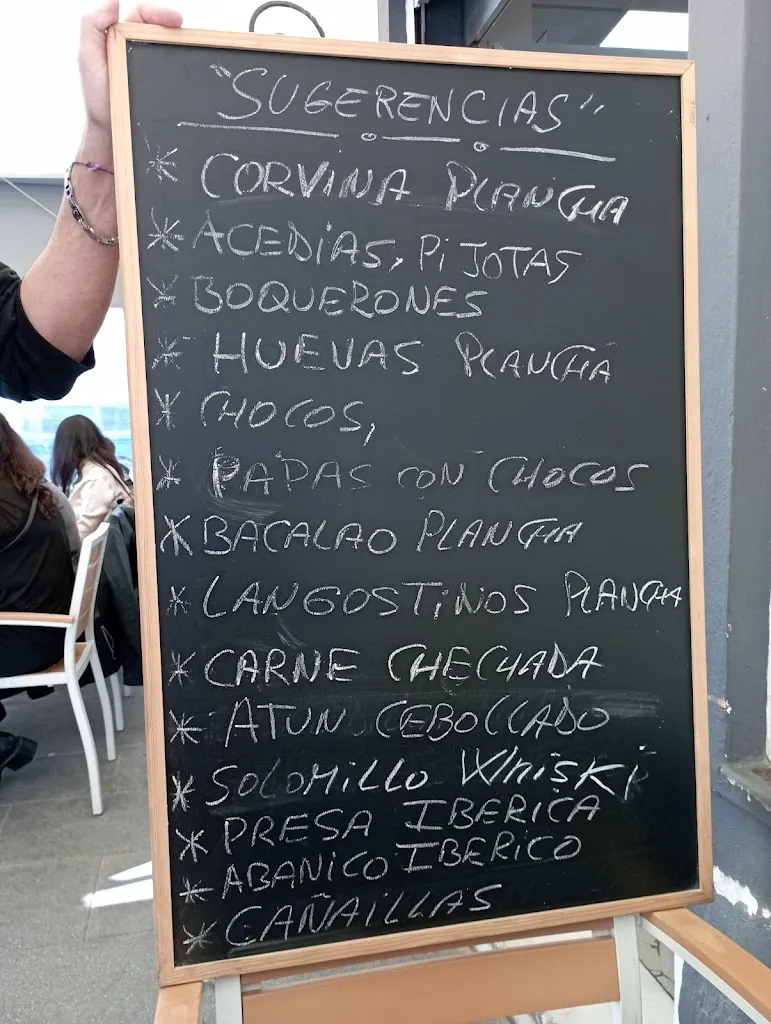 "SUGERENCIAS"
* CORVINA PLANCHA
* ACEDIAS, PIJOTAS
* BOQUERONES
* HUEVAS PLANCHA
* CHOCOS,
* PAPAS CON CHOCOS
* BACALAO PLANCHA
* LANGOSTINOS PLANCHA
* CARNE MECHADA
* ATUN CEBOLLADO
* SOLOMILLO WHISKI
* PRESA IBERICA
* ABANICO IBERICO
* CAÑAILLAS